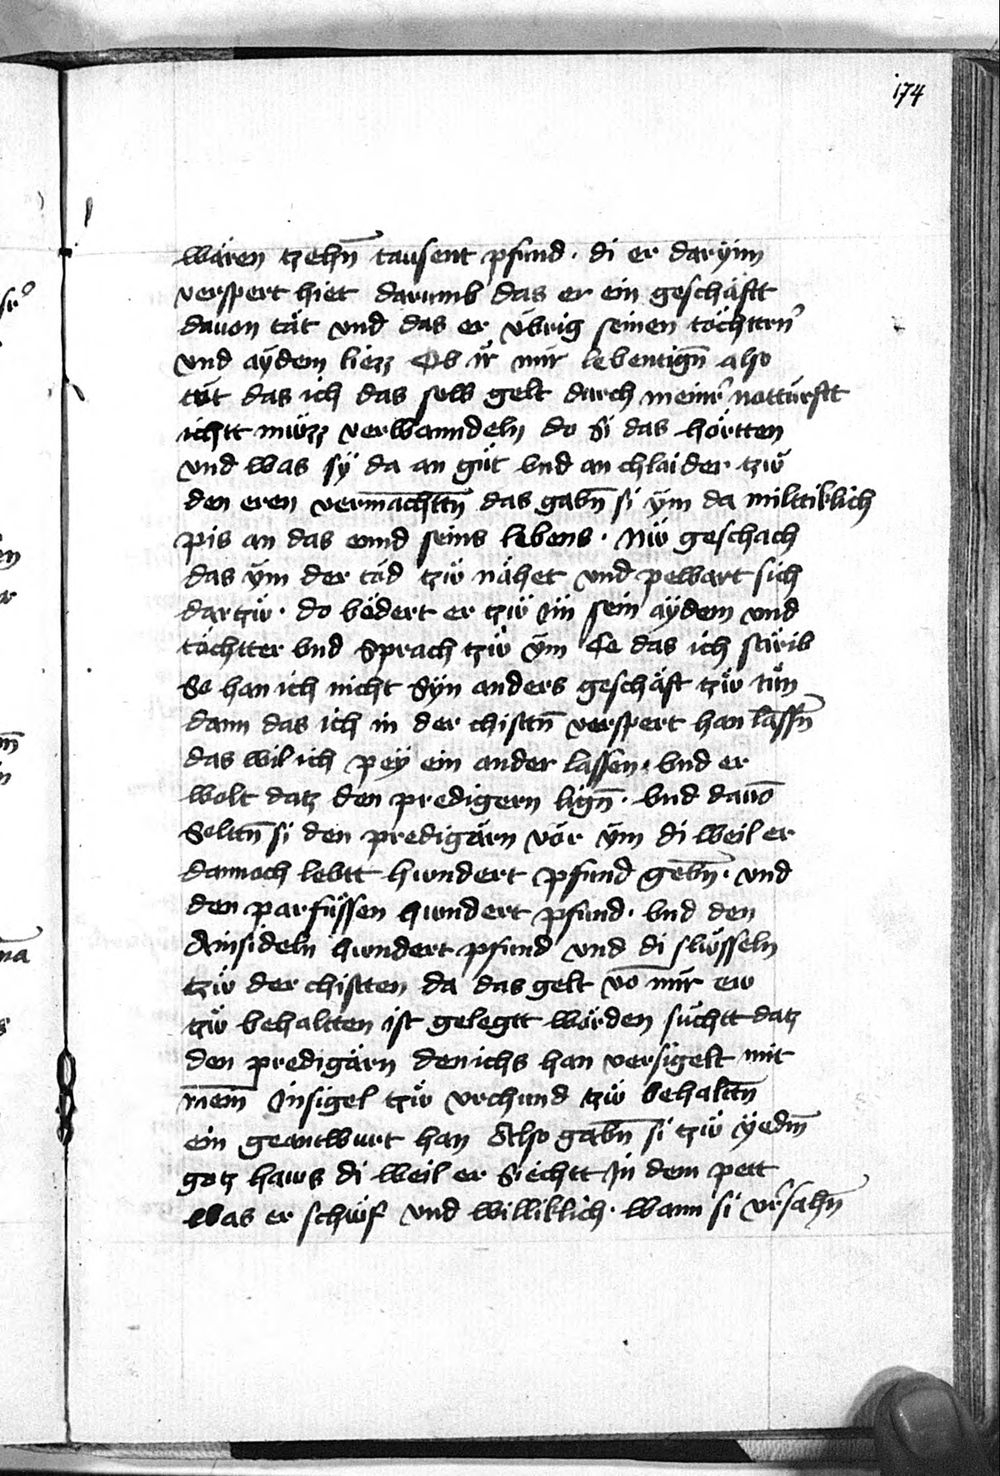 174
wären tzehn̄ tausent pfund · di er darynn
verspert hiet darumb das er ein geschäftt
dauon tät vnd das er v̈brig seinen töchttrn̄
vnd aÿdem liezz Ob ir mir lebentign̄ also
tüt das ich das selb gelt durch meinr̄ notturftt
ichtt müzz verwanndeln do si das hörtten
vnd was sÿ da an güt vnd an chlaider tzw̋
den eren vermachttn̄ das gabn̄ si ÿm da milttiklich
pis an das ennd seins lebens · Nw̋ geschach
das ÿm der tod tzw̋ nähet vnd pewart sich
dartzw̋ · do vödert er tzw̋ im sein aÿdem vnd
töchtter vnd Sprach tzw̋ ÿm Ee das ich stirib
So han ich nicht Sÿn anders geschäft tzw̋ tün
dann das ich in der chisttn̄ verspert han lassn̄
das wil ich peÿ ein ander lassen · vnd er
wolt datz den predigern lign̄ · vnd dauō
Solttn̄ si den predigärn vör ÿm di weil er
dannoch lebtt hwndert pfund gebn̄ · vnd
den parfüssen hwndert pfund · vnd den
Ainsideln hwndert pfund vnd di slüsseln
tzw̋ der chistten da das gelt vō mir ew
tzw̋ behaltten ist gelegtt wörden süchtt datz
den predigärn den ichs han versigelt mit
meim Insigel tzw̋ vrchund tzw̋ behalttn̄
ein geantwurt han Also gabn̄ si tzw̋ ÿedm̄
gotz haws di weil er Siechtt In dem pett
Was er schüf vnd williklich · wann si vr̄sahn̄